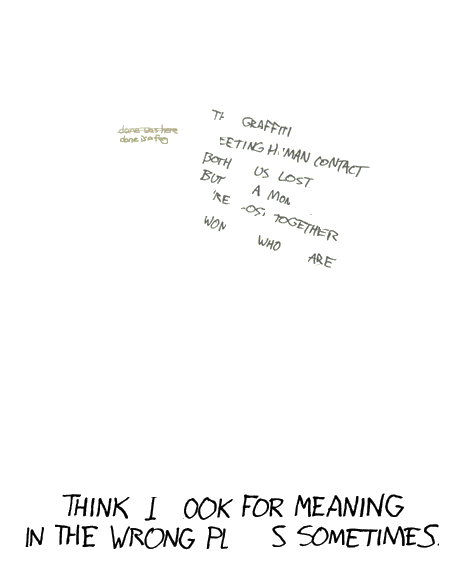 dane was here
dane is a fag
GRAFFITI
EETING H MAN CONTACT
BOTH US LOST
BUT A MOM
'RE OST TOGETHER
WON WHO ARE
THINK I OOK FOR MEANING
IN THE WRONG PL S SOMETIMES.